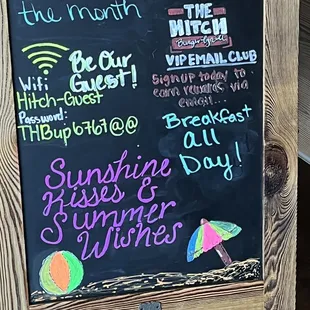 the month
Wifi
Be Our
Guest!
Hitch-Guest
Password:
THBup6767@@
THE
HITCH
Burger Grill
VIP EMAIL CLUB
Sign up today to
earn rewards via
email...
Breakfast
all
Day!
Sunshine
Kisses &
Summer
Wishes